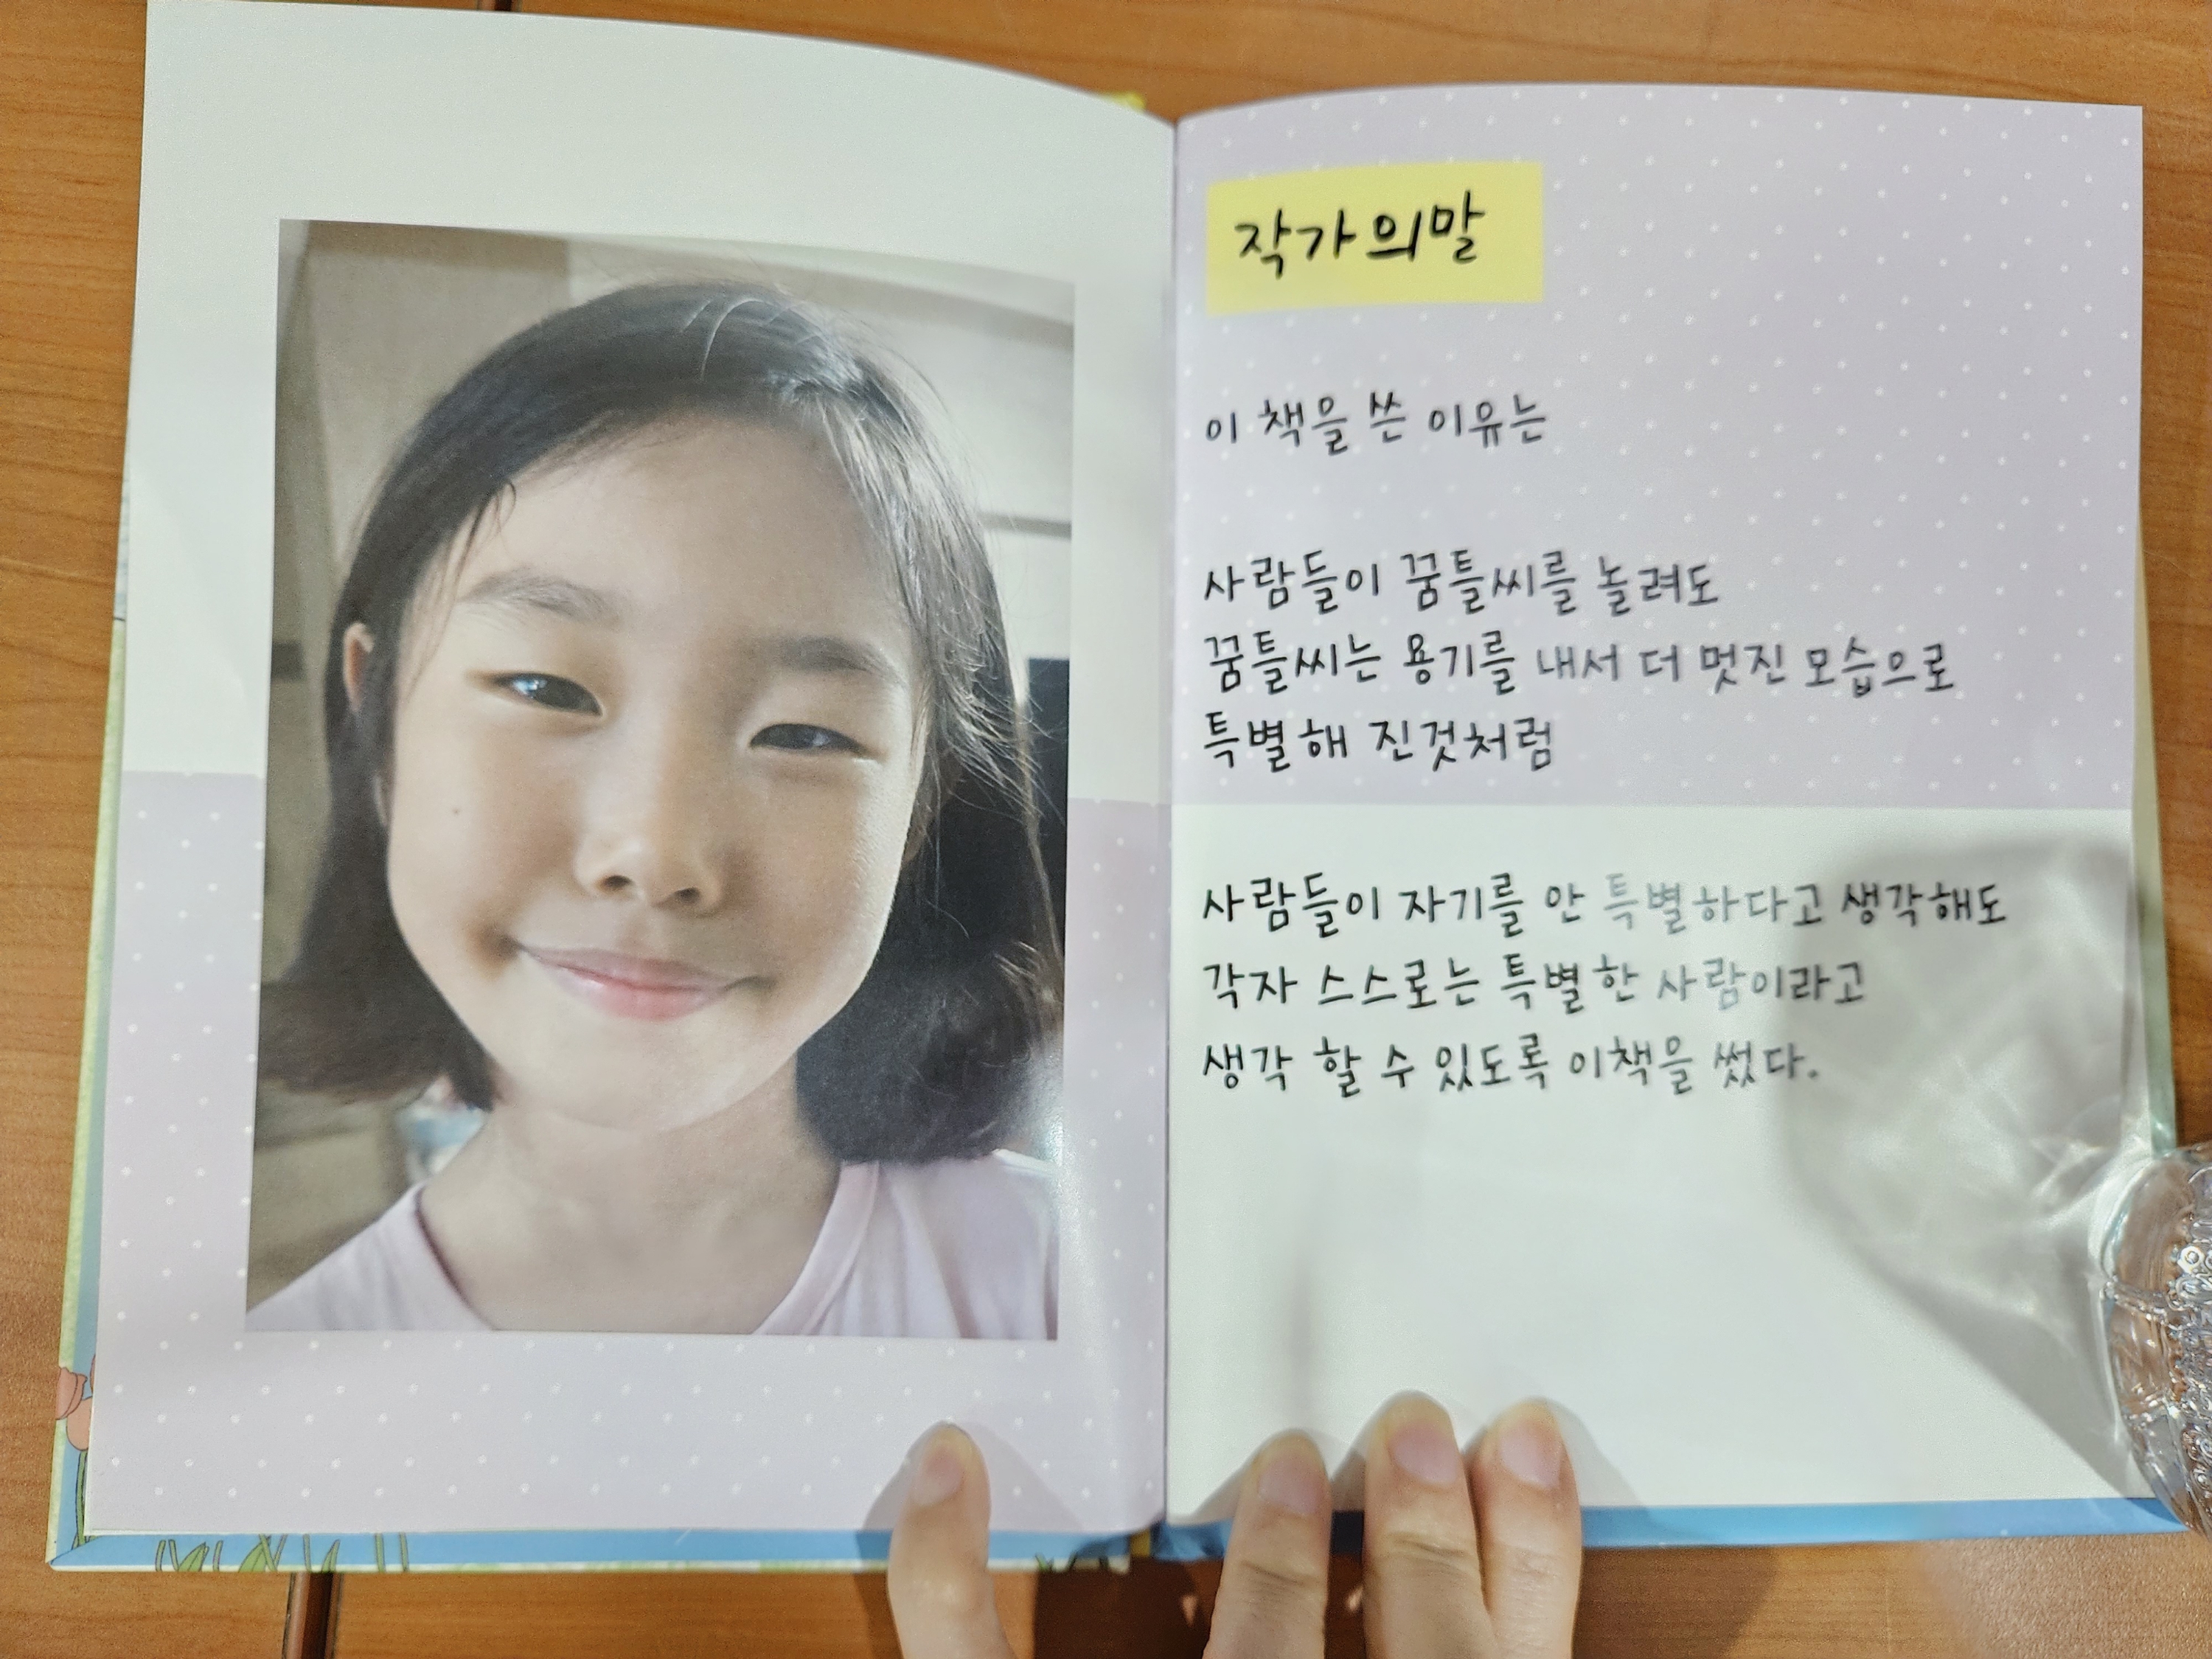 작가의말
이 책을 쓴 이유는
사람들이 꿈틀씨를 놀려도
꿈틀씨는 용기를 내서 더 멋진 모습으로
특별해 진것처럼
사람들이 자기를 안 특별하다고 생각해도
각자 스스로는 특별한 사람이라고
생각 할 수 있도록 이책을 썼다.